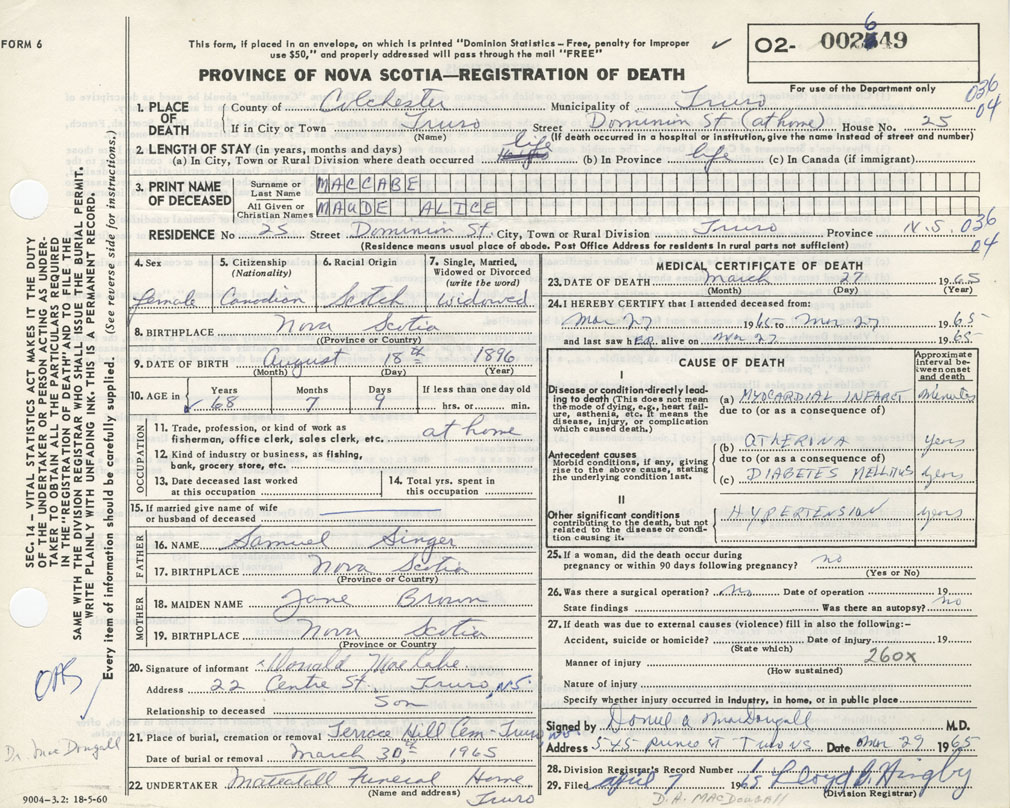 FORM 6
This form, if placed in an envelope, on which is printed "Dominion Statistics—Free, penalty for improper
use $50," and properly addressed will pass through the mail "FREE"
✓
O2- 002649
6
For use of the Department only
PROVINCE OF NOVA SCOTIA—REGISTRATION OF DEATH
036
04
1. PLACE OF DEATH
County of Colchester Municipality of Truro
If in City or Town Truro Street Dominion St (at home) House No. 25
(Name) (If death occurred in a hospital or institution, give the name instead of street and number)
2. LENGTH OF STAY (in years, months and days)
(a) In City, Town or Rural Division where death occurred life (b) In Province life (c) In Canada (if immigrant)
3. PRINT NAME OF DECEASED
Surname or Last Name MACCABE
All Given or Christian Names MAUDE ALICE
RESIDENCE No 25 Street Dominion St. City, Town or Rural Division Truro Province N.S. 036
04
(Residence means usual place of abode. Post Office Address for residents in rural parts not sufficient)
4. Sex female
5. Citizenship (Nationality) Canadian
6. Racial Origin Scotch
7. Single, Married, Widowed or Divorced (write the word) Widowed
8. BIRTHPLACE Nova Scotia
(Province or Country)
9. DATE OF BIRTH August 18th 1896
(Month) (Day) (Year)
10. AGE in Years 68 Months 7 Days 9 If less than one day old hrs. or min.
OCCUPATION
11. Trade, profession, or kind of work as fisherman, office clerk, sales clerk, etc. at home
12. Kind of industry or business, as fishing, bank, grocery store, etc.
13. Date deceased last worked at this occupation
14. Total yrs. spent in this occupation
15. If married give name of wife or husband of deceased
FATHER
16. NAME Samuel Singer
17. BIRTHPLACE Nova Scotia
(Province or Country)
MOTHER
18. MAIDEN NAME Jane Brown
19. BIRTHPLACE Nova Scotia
(Province or Country)
20. Signature of informant Donald MacCabe
Address 22 Centre St. Truro, N.S.
Relationship to deceased Son
21. Place of burial, cremation or removal Terrace Hill Cem-Truro, N.S.
Date of burial or removal March 30th 1965
22. UNDERTAKER Mattatall Funeral Home
(Name and address) Truro
9004-3.2: 18-5-60
MEDICAL CERTIFICATE OF DEATH
23. DATE OF DEATH March 27 1965
(Month) (Day) (Year)
24. I HEREBY CERTIFY that I attended deceased from:
Mar 27 1965 to Mar 27 1965
and last saw her alive on Mar 27 1965
CAUSE OF DEATH
Approximate interval between onset and death
I
Disease or condition directly leading to death (This does not mean the mode of dying, e.g., heart failure, asthenia, etc. It means the disease, injury, or complication which caused death.)
(a) MYOCARDIAL INFARCT minutes
due to (or as a consequence of)
Antecedent causes
Morbid conditions, if any, giving rise to the above cause, stating the underlying condition last.
(b) years
due to (or as a consequence of)
(c) DIABETES MELLITUS years
II
Other significant conditions contributing to the death, but not related to the disease or condition causing it.
HYPERTENSION years
25. If a woman, did the death occur during pregnancy or within 90 days following pregnancy? no
(Yes or No)
26. Was there a surgical operation? no Date of operation 19
State findings Was there an autopsy? no
27. If death was due to external causes (violence) fill in also the following:-
Accident, suicide or homicide? Date of injury 19
(State which)
Manner of injury 260X
(How sustained)
Nature of injury
Specify whether injury occurred in industry, in home, or in public place
Signed by Daniel A MacDougall M.D.
Address 545 Prince St Truro NS Date Mar 29 1965
28. Division Registrar's Record Number
29. Filed april 7 1965
(Division Registrar)
D. A. MACDOUGALL
SEC. 14 — VITAL STATISTICS ACT MAKES IT THE DUTY
OF THE UNDERTAKER OR PERSON ACTING AS UNDER-
TAKER TO OBTAIN ALL THE PARTICULARS REQUIRED
IN THE "REGISTRATION OF DEATH" AND TO FILE THE
SAME WITH THE DIVISION REGISTRAR WHO SHALL ISSUE THE BURIAL PERMIT.
WRITE PLAINLY WITH UNFADING INK. THIS IS A PERMANENT RECORD.
Every item of information should be carefully supplied. (See reverse side for instructions.)
Dr. MacDougall